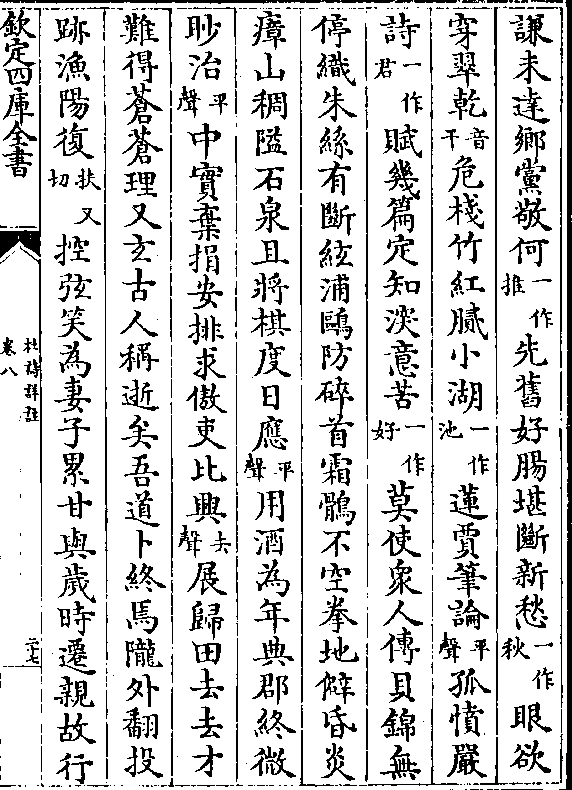 謙未達鄉黨敬何一作推先舊好腸堪斷新愁一作秋眼欲
穿翠乾音干危棧竹紅膩小湖一作池蓮賈筆論平聲孤憤嚴
詩一作君賦幾篇定知深意苦一作好莫使衆人傳貝錦無
停織朱絲有斷絃浦鷗防碎首霜鶻不空拳地僻昏炎
瘴山稠隘石泉且將棋度日應平聲用酒為年典郡終微
眇治平聲中實棄捐安排求傲吏比興去聲展歸田去去才
難得蒼蒼理又玄古人稱逝矣吾道卜終焉隴外翻投
跡漁陽復扶又切控弦笑為妻子累甘與歲時遷親故行
欽定四庫全書
杜詩詳註
卷八
二十七